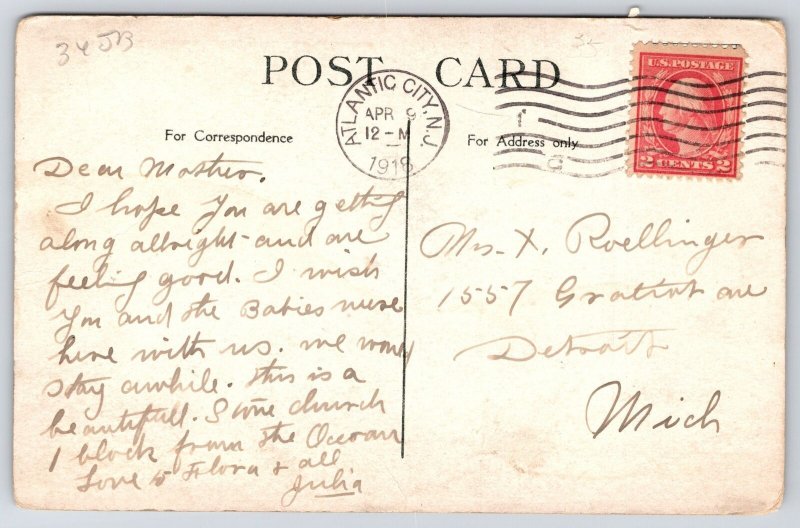 POST CARD
ATLANTIC CITY, N.J.
APR 9
12-M
1918
U.S. POSTAGE
2 CENTS 2
For Correspondence
For Address only
Dear Mother,
I hope you are getting
along allright and are
feeling good. I wish
you and the Babies were
here with us. we would
stay awhile. this is a
beautifull. Stone church
1 block from the Ocean
Love to Flora & all
Julia
Mrs. X. Roellinger
1557 Gratiot ave
Detroit
Mich